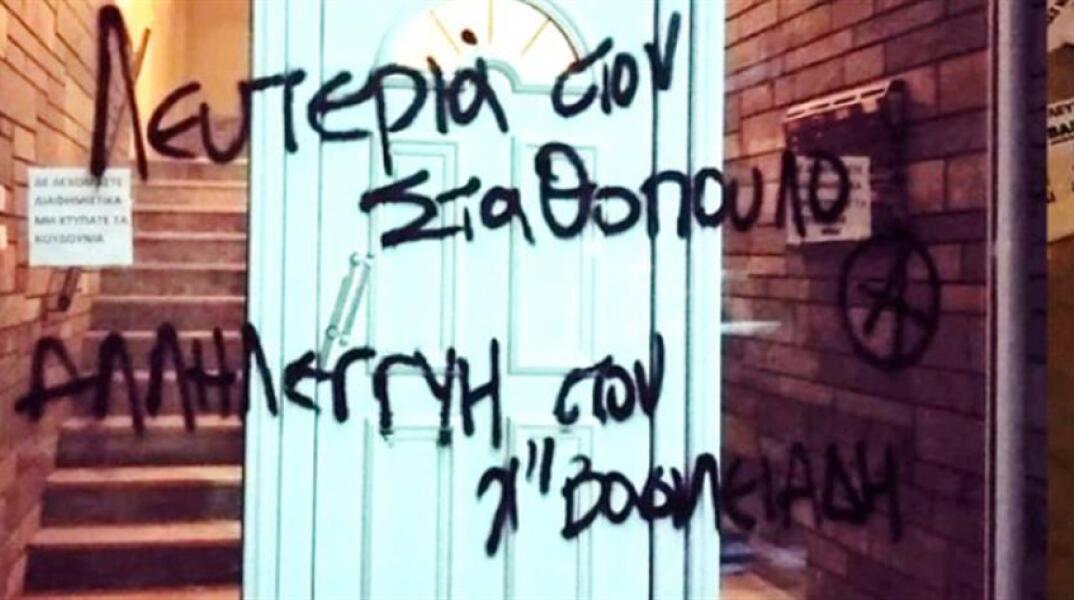 Λευτεριά στον
Σταθόπουλο
Αλληλεγγύη στον
Χ"Βασιλειάδη
ΔΕ ΔΕΧΟΜΑΣΤΕ
ΔΙΑΦΗΜΙΣΤΙΚΑ
ΜΗ ΧΤΥΠΑΤΕ ΤΑ
ΚΟΥΔΟΥΝΙΑ